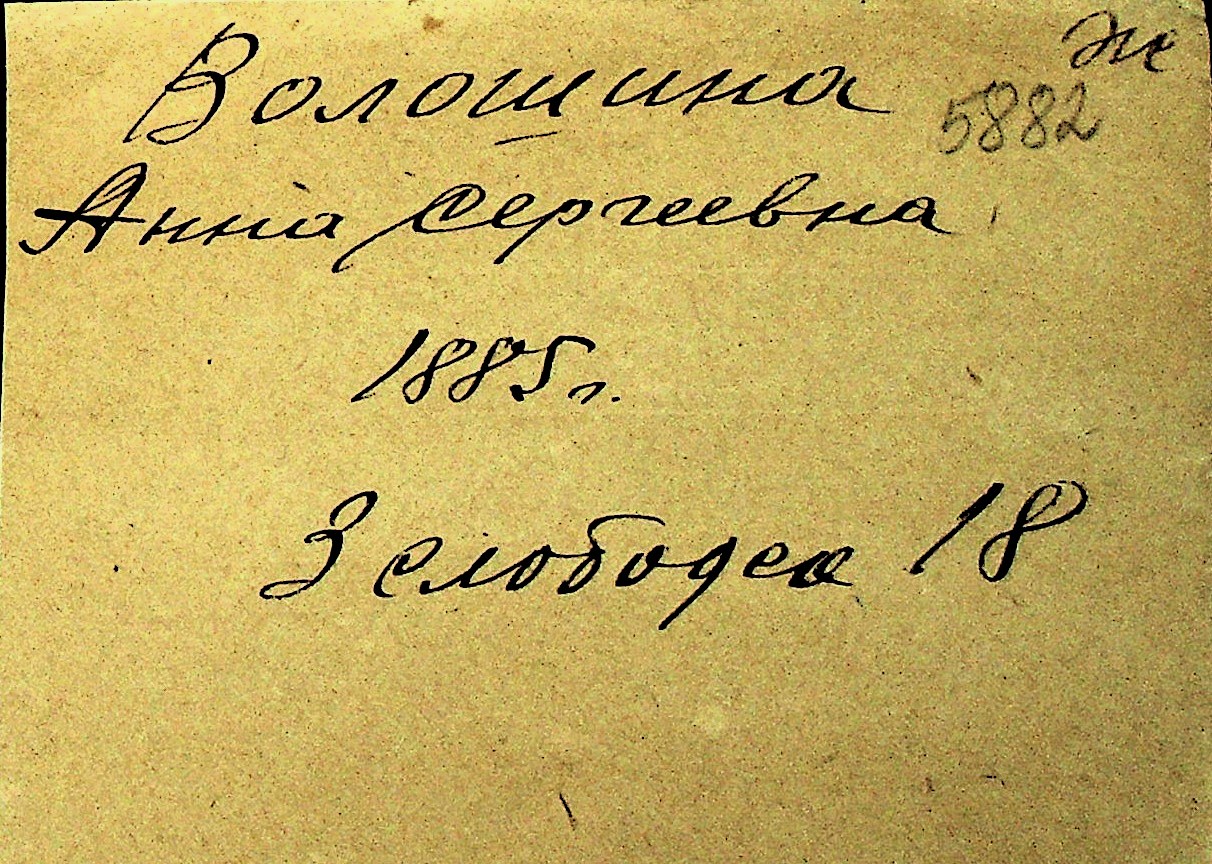 Волошина
Ж
5882
Анна Сергеевна
1885г.
3 слободса 18